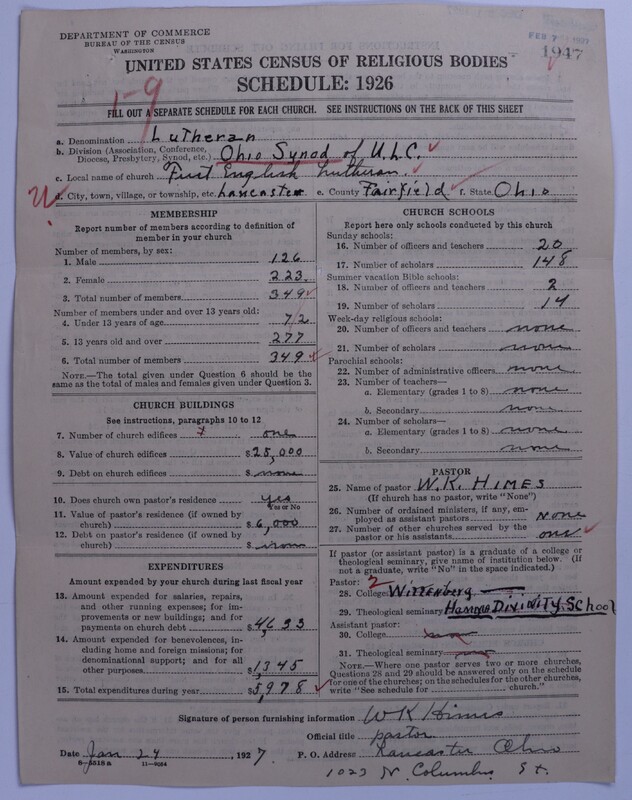 DEPARTMENT OF COMMERCE
BUREAU OF THE CENSUS
WASHINGTON
FEB 7 1927
1947
UNITED STATES CENSUS OF RELIGIOUS BODIES
SCHEDULE: 1926
1-9
FILL OUT A SEPARATE SCHEDULE FOR EACH CHURCH. SEE INSTRUCTIONS ON THE BACK OF THIS SHEET
a. Denomination Lutheran
b. Division (Association, Conference, Diocese, Presbytery, Synod, etc.) Ohio Synod of U.L.C.
c. Local name of church First English Lutheran.
d. City, town, village, or township, etc. Lancaster e. County Fairfield f. State Ohio
U
MEMBERSHIP
Report number of members according to definition of
member in your church
Number of members, by sex:
1. Male 126
2. Female 223
3. Total number of members 349
Number of members under and over 13 years old:
4. Under 13 years of age 72
5. 13 years old and over 277
6. Total number of members 349
NOTE.—The total given under Question 6 should be
the same as the total of males and females given under Question 3.
CHURCH BUILDINGS
See instructions, paragraphs 10 to 12
7. Number of church edifices one
8. Value of church edifices $25,000
9. Debt on church edifices $ none
10. Does church own pastor's residence yes
Yes or No
11. Value of pastor's residence (if owned by
church) $6,000
12. Debt on pastor's residence (if owned by
church) $ none
EXPENDITURES
Amount expended by your church during last fiscal year
13. Amount expended for salaries, repairs,
and other running expenses; for im-
provements or new buildings; and for
payments on church debt $4,633
14. Amount expended for benevolences, in-
cluding home and foreign missions; for
denominational support; and for all
other purposes $1,345
15. Total expenditures during year $5,978
CHURCH SCHOOLS
Report here only schools conducted by this church
Sunday schools:
16. Number of officers and teachers 20
17. Number of scholars 148
Summer vacation Bible schools:
18. Number of officers and teachers 2
19. Number of scholars 14
Week-day religious schools:
20. Number of officers and teachers none
21. Number of scholars none
Parochial schools:
22. Number of administrative officers none
23. Number of teachers—
a. Elementary (grades 1 to 8) none
b. Secondary none
24. Number of scholars—
a. Elementary (grades 1 to 8) none
b. Secondary none
PASTOR
25. Name of pastor W.K. HIMES
(If church has no pastor, write "None")
26. Number of ordained ministers, if any, em-
ployed as assistant pastors None
27. Number of other churches served by the
pastor or his assistants one
If pastor (or assistant pastor) is a graduate of a college or
theological seminary, give name of institution below. (If
not a graduate, write "No" in the space indicated.)
Pastor: 2
28. College Wittenberg
29. Theological seminary Hamma DIVINITY School
Assistant pastor:
30. College
31. Theological seminary
NOTE.—Where one pastor serves two or more churches,
Questions 28 and 29 should be answered only on the schedule
for one of the churches; on the schedules for the other churches,
write "See schedule for ________ church."
Signature of person furnishing information WK Himes
Official title pastor
Date Jan 24, 1927 P. O. Address Lancaster Ohio
8-5518 a 11-9064
1023 N. Columbus St.